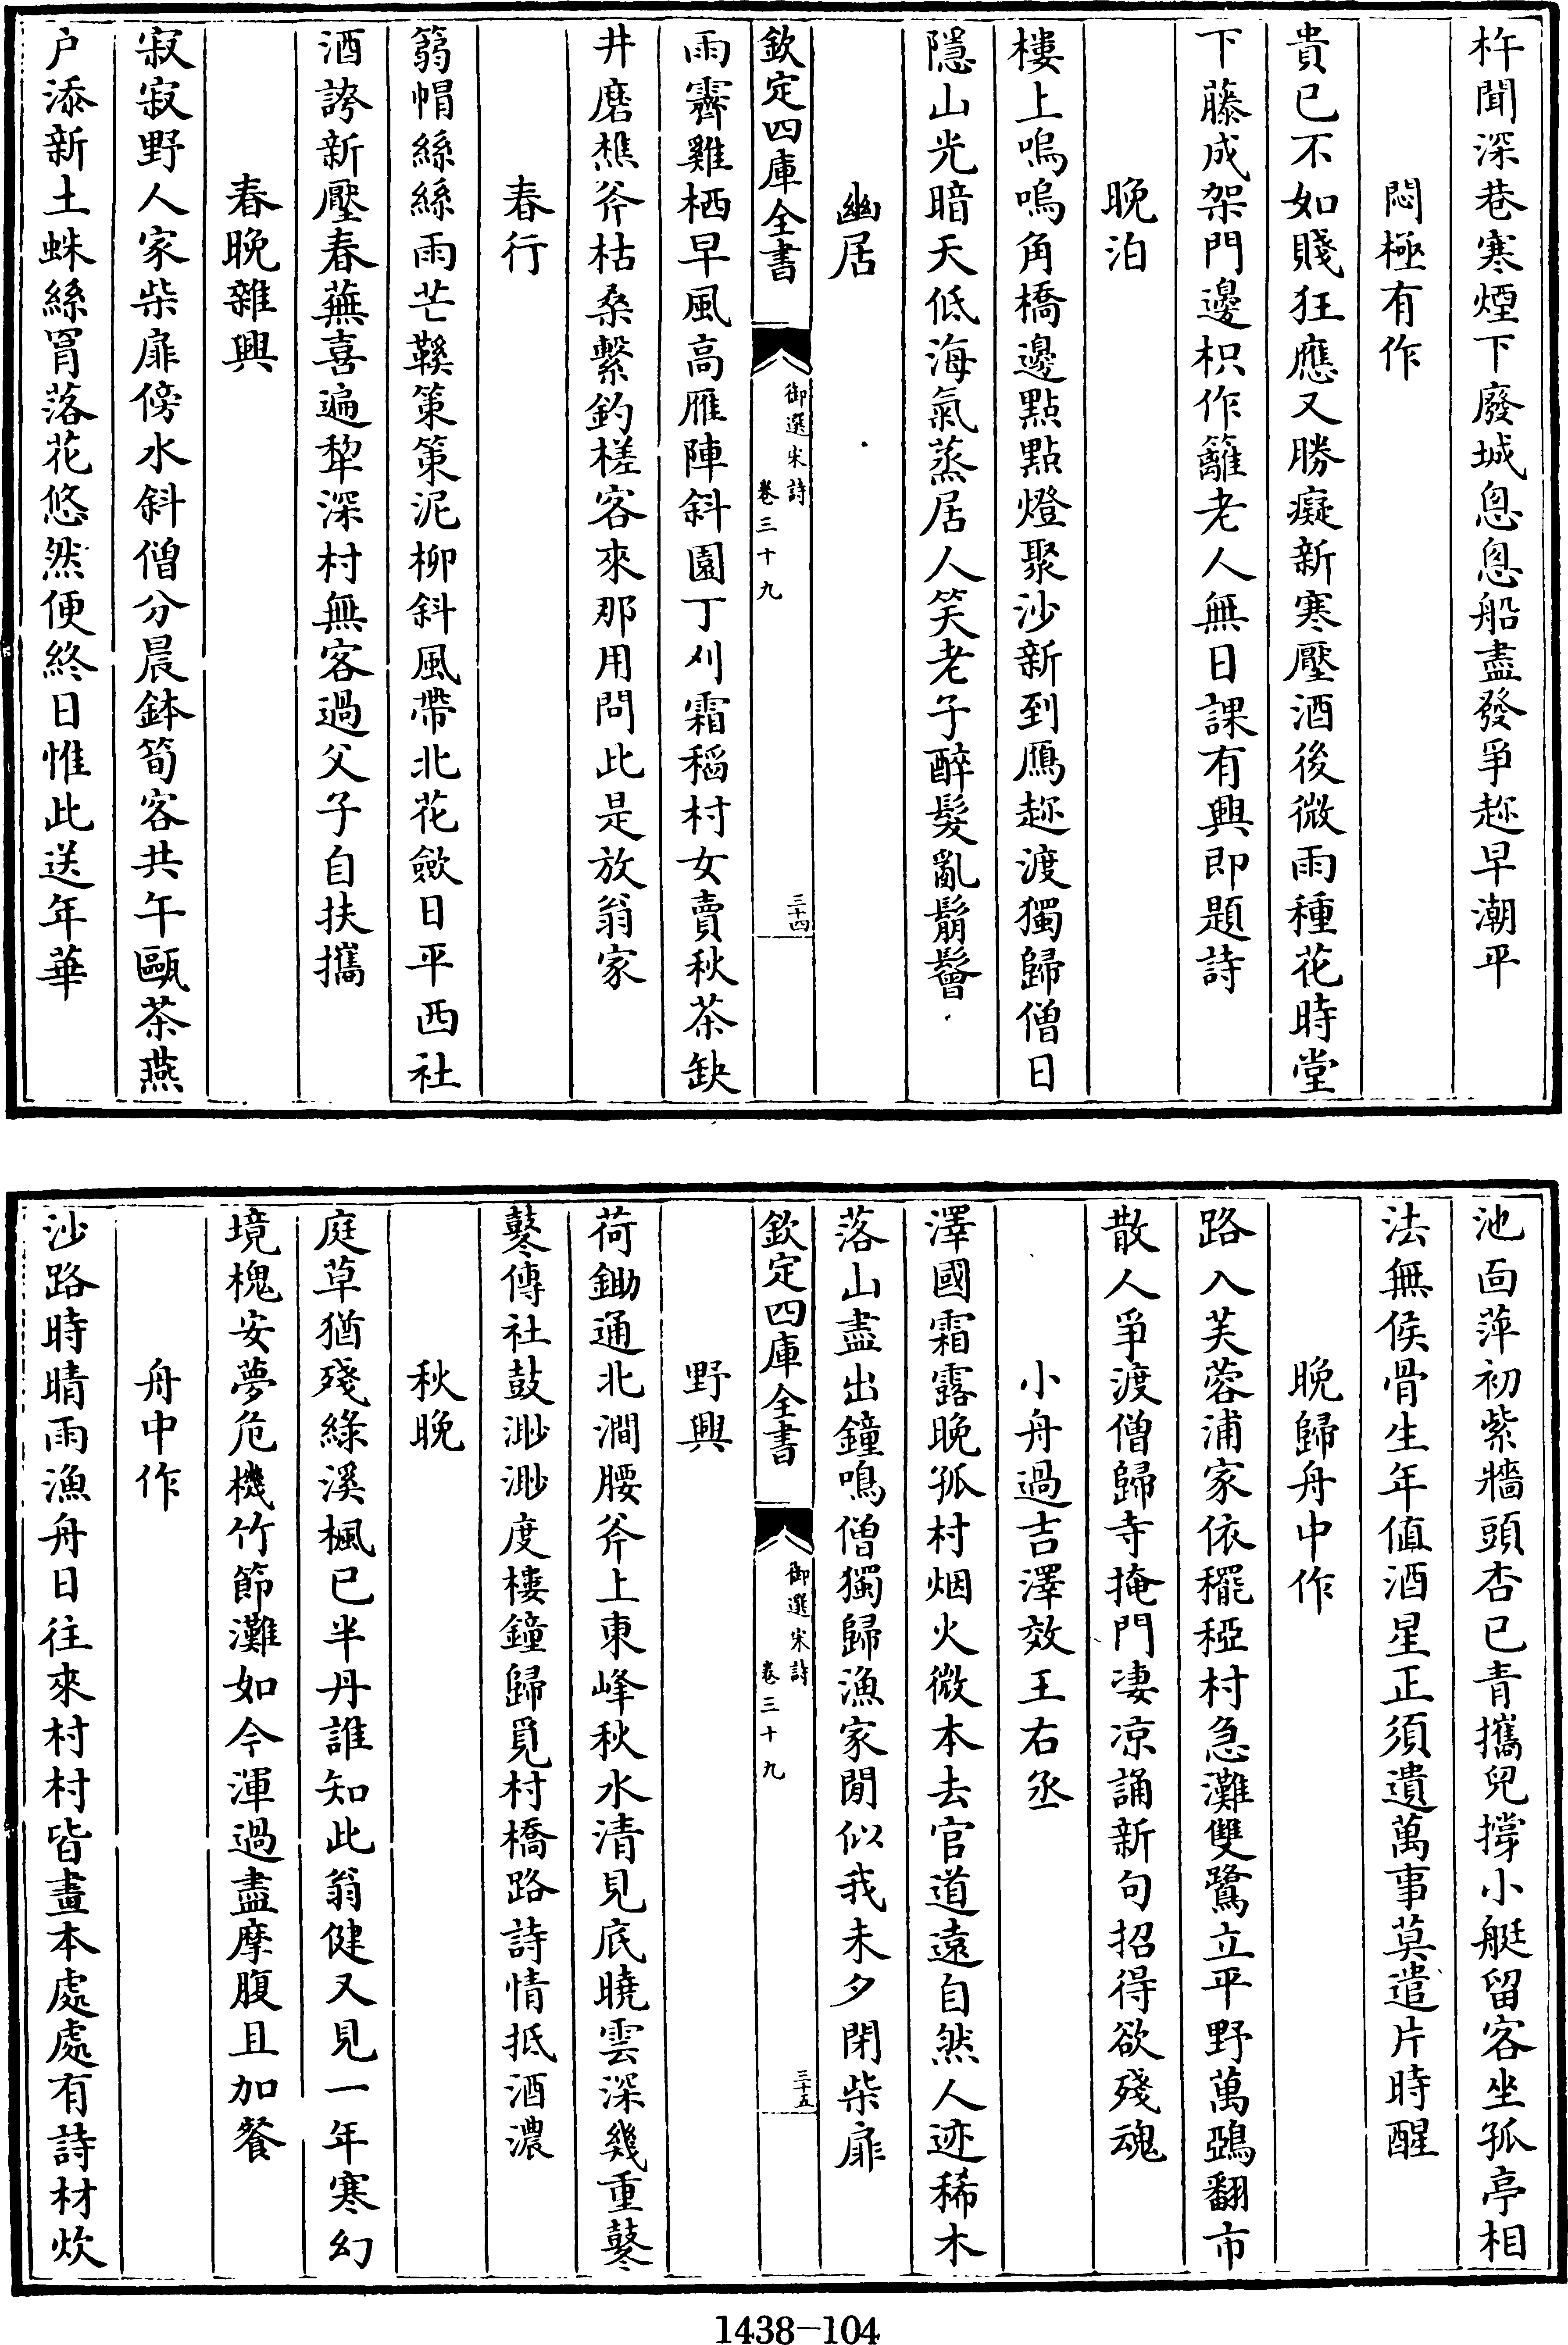 杵聞深巷寒煙下廢城匆匆船盡發爭趂早潮平
悶極有作
貴已不如賤狂應又勝癡新寒壓酒後微雨種花時堂
下藤成架門邊枳作籬老人無日課有興即題詩
晚泊
樓上嗚嗚角橋邊點點燈聚沙新到鴈趂渡獨歸僧日
隱山光暗天低海氣蒸居人笑老子醉髮亂鬅鬙
幽居
欽定四庫全書
御選宋詩
卷三十九
三十四
雨霽雞栖早風高雁陣斜園丁刈霜稻村女賣秋茶缺
井磨樵斧枯桑繫釣槎客來那用問此是放翁家
春行
篛帽絲絲雨芒鞵策策泥柳斜風帶北花斂日平西社
酒誇新壓春蕪喜遍犂深村無客過父子自扶攜
春晚雜興
寂寂野人家柴扉傍水斜僧分晨鉢筍客共午甌茶燕
户添新土蛛絲罥落花悠然便終日惟此送年華
池面萍初紫牆頭杏已青攜兒撐小艇留客坐孤亭相
法無侯骨生年值酒星正須遺萬事莫遣片時醒
晚歸舟中作
路入芙蓉浦家依䆉稏村急灘雙鷺立平野萬鵶翻市
散人爭渡僧歸寺掩門凄凉誦新句招得欲殘魂
小舟過吉澤效王右丞
澤國霜露晚孤村烟火微本去官道遠自然人迹稀木
落山盡出鐘鳴僧獨歸漁家閒似我未夕閉柴扉
欽定四庫全書
御選宋詩
卷三十九
三十五
野興
荷鋤通北澗腰斧上東峰秋水清見底曉雲深幾重鼕
鼕傳社鼓渺渺度樓鐘歸覓村橋路詩情抵酒濃
秋晚
庭草猶殘綠溪楓已半丹誰知此翁健又見一年寒幻
境槐安夢危機竹節灘如今渾過盡摩腹且加餐
舟中作
沙路時晴雨漁舟日往來村村皆畫本處處有詩材炊
1438-104